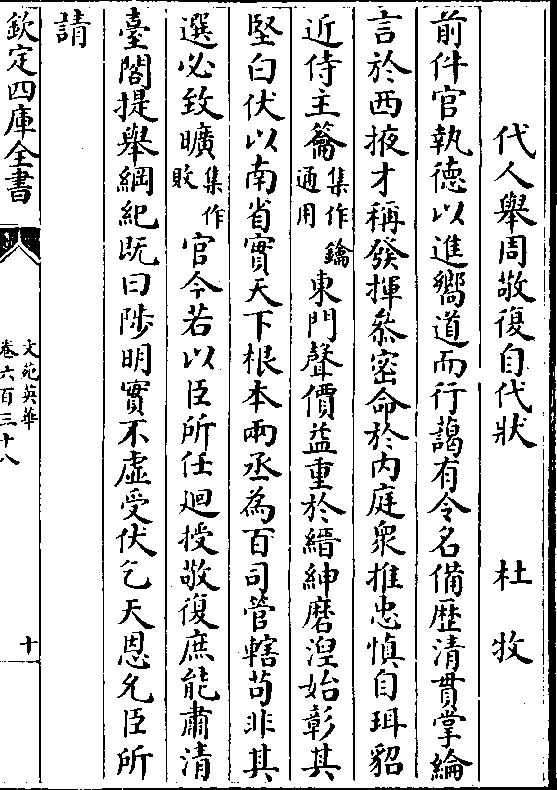 代人舉周敬復自代狀　杜牧
前件官執德以進嚮道而行藹有令名備歴清貫掌綸
言於西掖才稱發揮叅密命於内庭衆推忠慎自珥貂
近侍主籥集作鑰通用東門聲價益重於縉紳磨湼始彰其
堅白伏以南省實天下根本兩丞為百司管轄苟非其
選必致曠集作敗官今若以臣所任廻授敬復庶能肅清
臺閣提舉綱紀旣曰陟明實不虚受伏乞天恩允臣所
請
欽定四庫全書
文苑英華
卷六百三十八
十